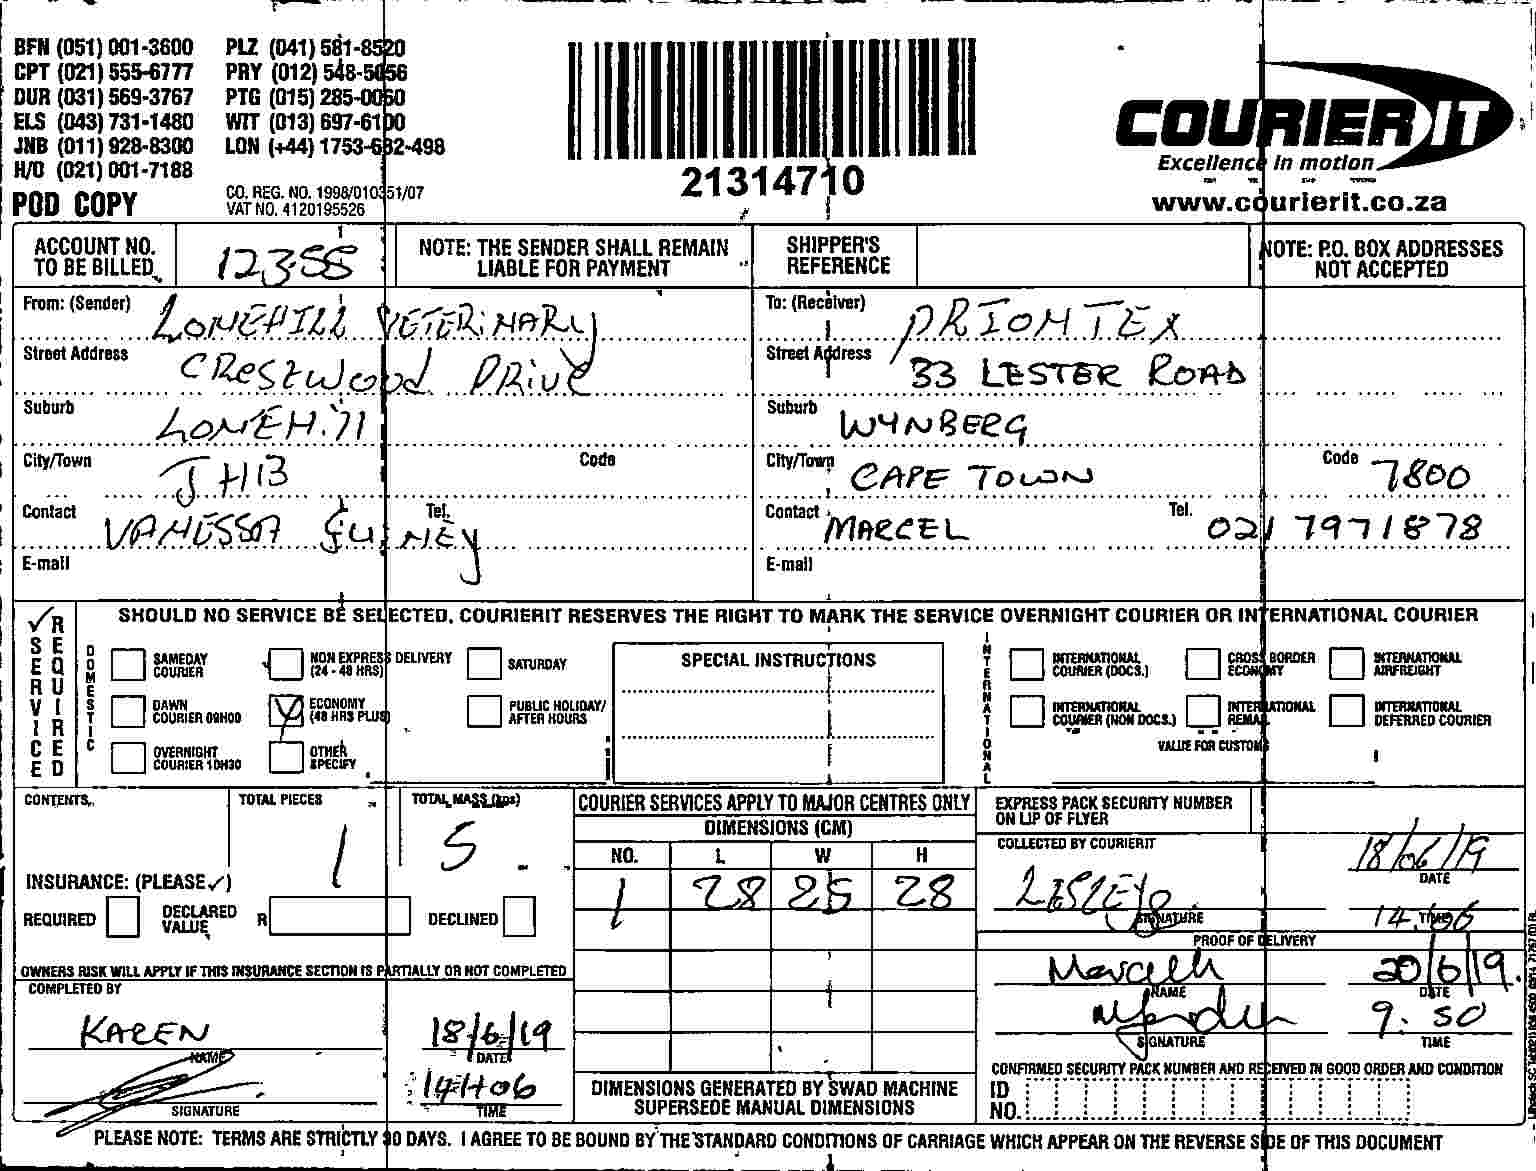 BFN (051) 001-3600 PLZ (041) 581-8520
CPT (021) 555-6777 PRY (012) 548-5056
DUR (031) 569-3767 PTG (015) 285-0060
ELS (043) 731-1480 WIT (013) 697-6100
JNB (011) 928-8300 LON (+44) 1753-682-498
H/O (021) 001-7188
POD COPY
CO. REG. NO. 1998/010351/07
VAT NO. 4120195526
21314710
COURIER IT
Excellence in motion
www.courierit.co.za
ACCOUNT NO. TO BE BILLED 12355
NOTE: THE SENDER SHALL REMAIN LIABLE FOR PAYMENT
SHIPPER'S REFERENCE
NOTE: P.O. BOX ADDRESSES NOT ACCEPTED
From: (Sender) LONEHILL VETERINARY
Street Address CRESTWOOD DRIVE
Suburb LONEHill
City/Town JHB Code
Contact VANESSA Tel.
E-mail
To: (Receiver) PRIOMTEX
Street Address 33 LESTER ROAD
Suburb WYNBERG
City/Town CAPE TOWN Code 7800
Contact MARCEL Tel. 021 7971878
E-mail
SERVICE REQUIRED
SHOULD NO SERVICE BE SELECTED, COURIERIT RESERVES THE RIGHT TO MARK THE SERVICE OVERNIGHT COURIER OR INTERNATIONAL COURIER
DOMESTIC
SAMEDAY COURIER
NON EXPRESS DELIVERY (24 - 48 HRS)
SATURDAY
DAWN COURIER 09H00
ECONOMY (48 HRS PLUS)
PUBLIC HOLIDAY/ AFTER HOURS
OVERNIGHT COURIER 10H30
OTHER SPECIFY
SPECIAL INSTRUCTIONS
INTERNATIONAL
INTERNATIONAL COURIER (DOCS.)
CROSS BORDER ECONOMY
INTERNATIONAL AIRFREIGHT
INTERNATIONAL COURIER (NON DOCS.)
INTERNATIONAL REMAIL
INTERNATIONAL DEFERRED COURIER
VALUE FOR CUSTOMS
CONTENTS
TOTAL PIECES 1
TOTAL MASS (kgs) 5
INSURANCE: (PLEASE ✓)
REQUIRED
DECLARED VALUE R
DECLINED
OWNERS RISK WILL APPLY IF THIS INSURANCE SECTION IS PARTIALLY OR NOT COMPLETED
COMPLETED BY
KAREN 18/6/19
NAME DATE
14H06
SIGNATURE TIME
COURIER SERVICES APPLY TO MAJOR CENTRES ONLY
DIMENSIONS (CM)
NO. L W H
1 28 25 28
DIMENSIONS GENERATED BY SWAD MACHINE SUPERSEDE MANUAL DIMENSIONS
EXPRESS PACK SECURITY NUMBER ON LIP OF FLYER
COLLECTED BY COURIERIT
18/06/19
DATE
LESLEY 14:06
SIGNATURE TIME
PROOF OF DELIVERY
20/6/19.
NAME DATE
9:50
SIGNATURE TIME
CONFIRMED SECURITY PACK NUMBER AND RECEIVED IN GOOD ORDER AND CONDITION
ID NO.
PLEASE NOTE: TERMS ARE STRICTLY 30 DAYS. I AGREE TO BE BOUND BY THE STANDARD CONDITIONS OF CARRIAGE WHICH APPEAR ON THE REVERSE SIDE OF THIS DOCUMENT